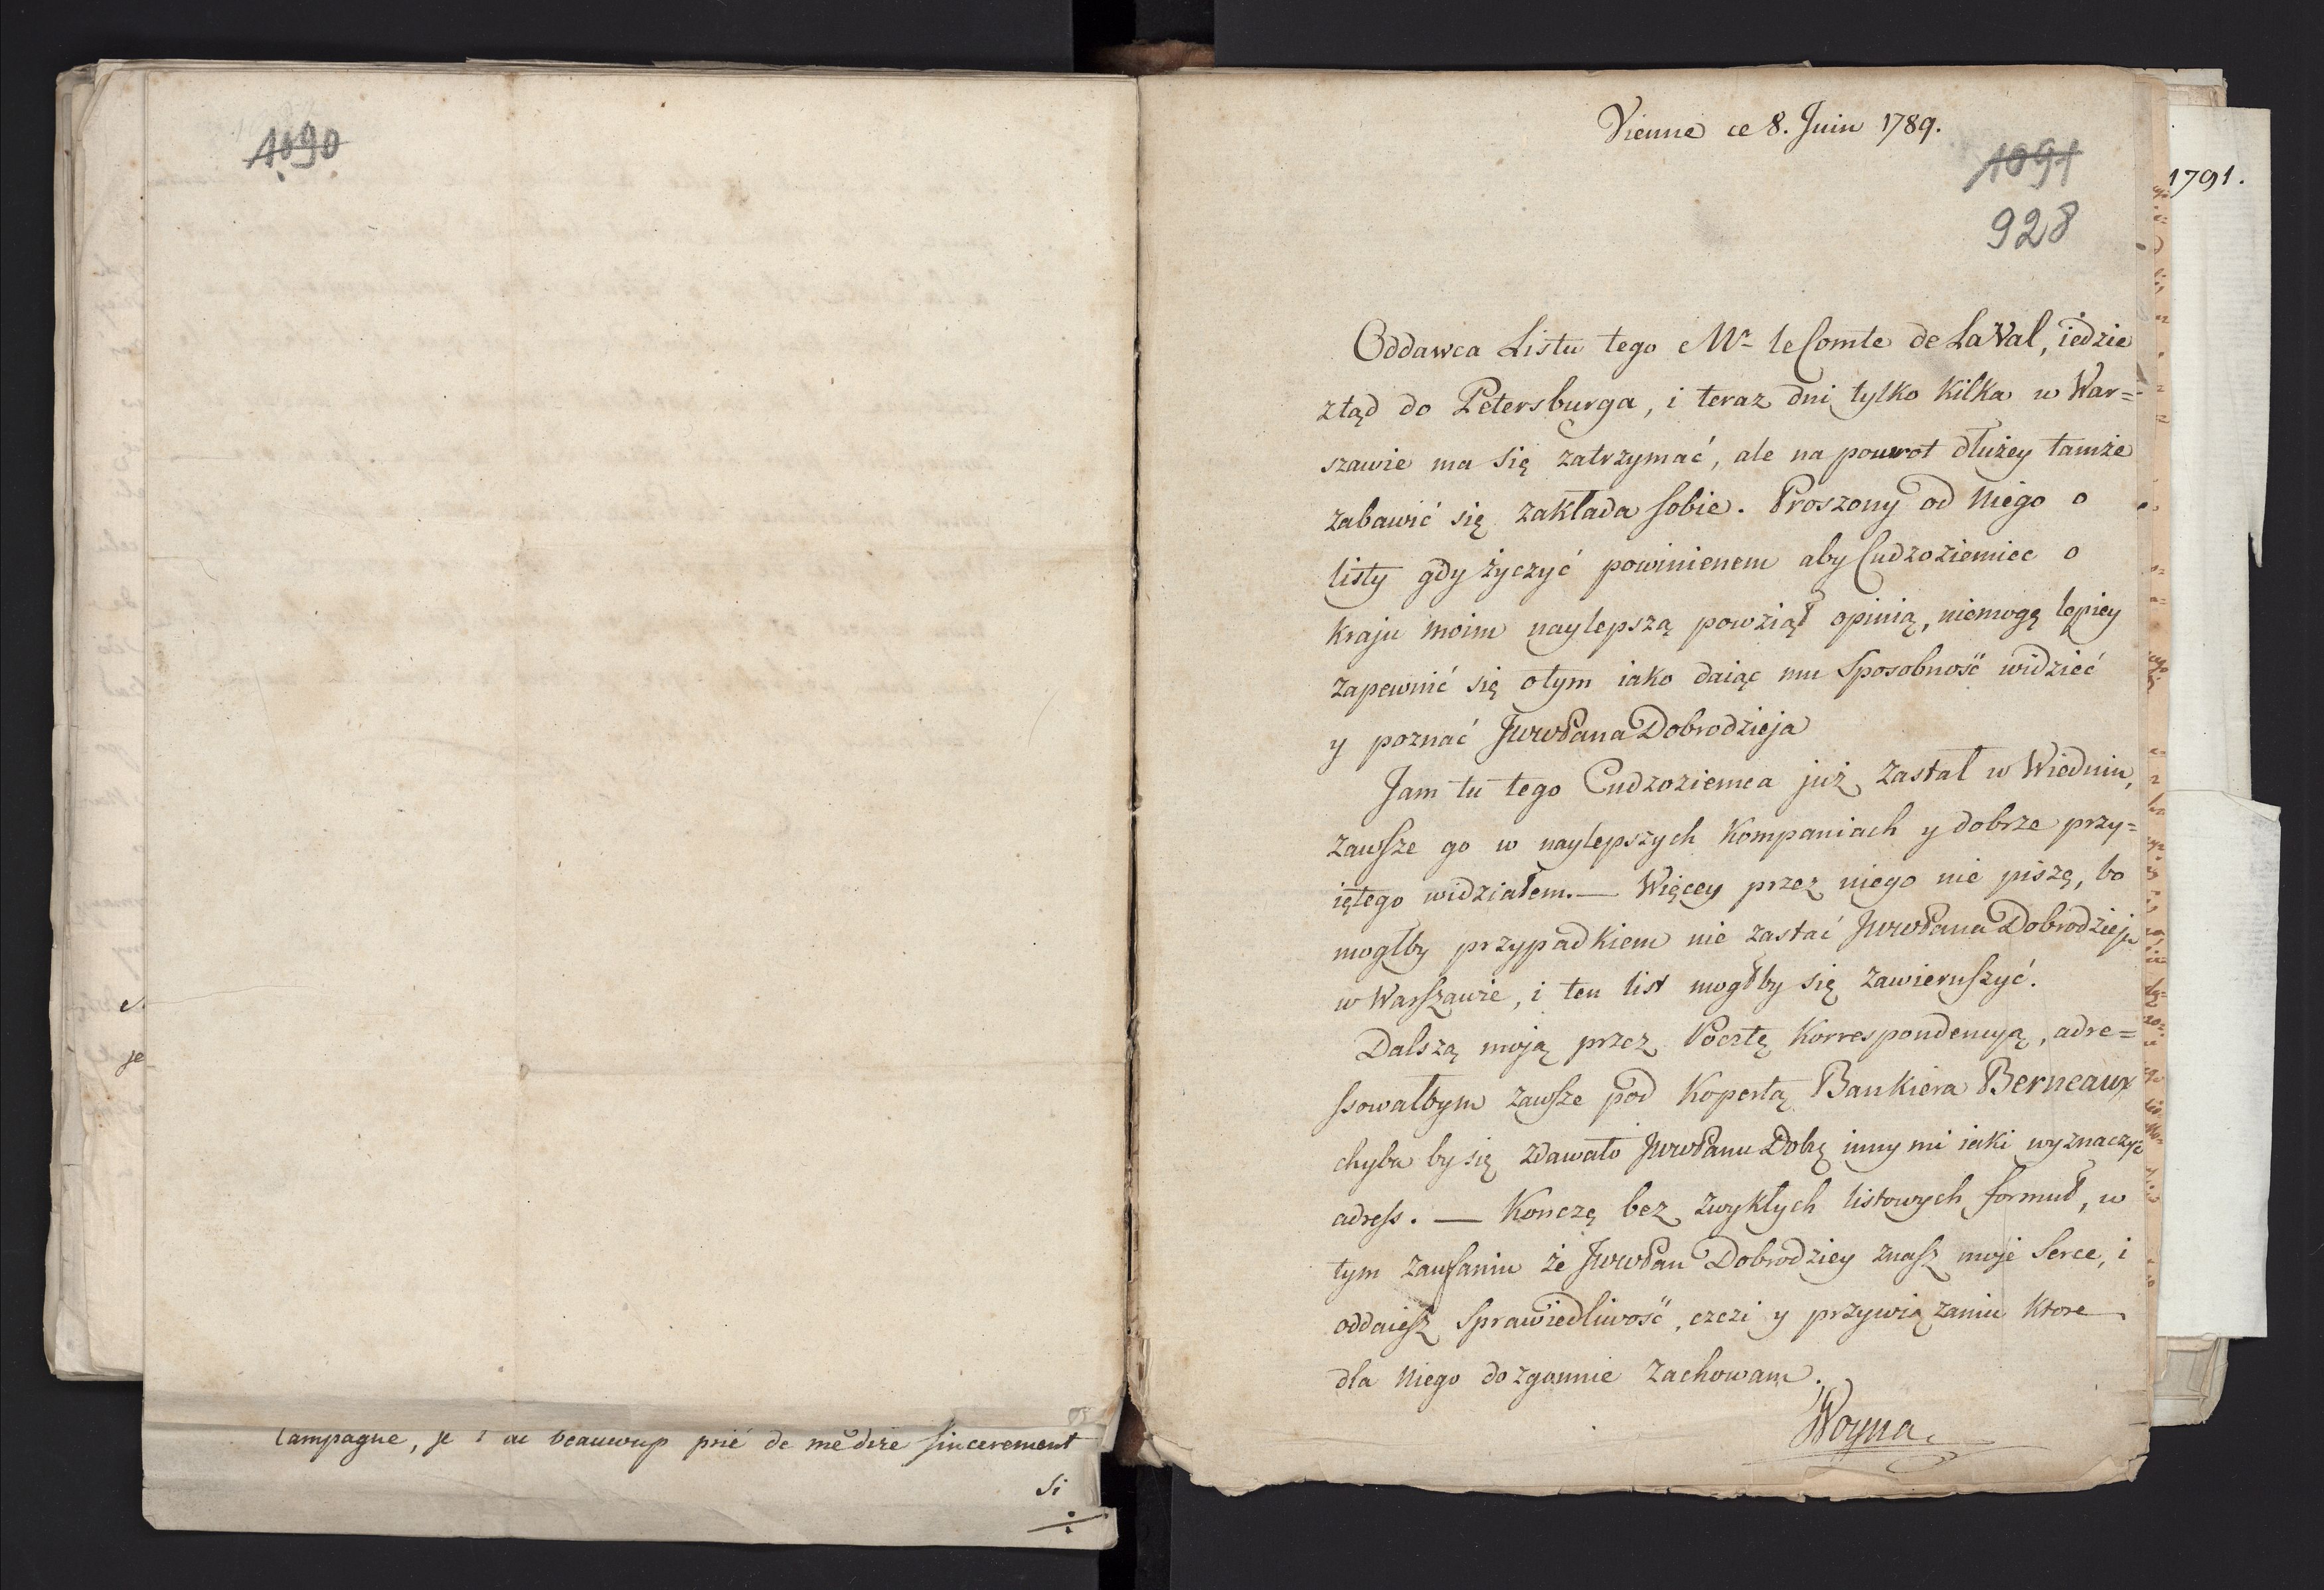 1090
Campagne, je l'ai beaucoup prié de me dire sincerement
si
Vienne ce 8. Juin 1789.
1091
928
1791.
Oddawca Listu tego Mr le Comte de LaVal, iedzie
ztąd do Petersburga, i teraz dni tylko kilka w War=
szawie ma się zatrzymać, ale na powrot dłużey tamże
zabawić się zakłada sobie. Proszony od niego o
listy gdy życzyć powinienem aby Cudzoziemiec o
kraju moim naylepszą powziął opinią, niemogę lepiey
zapewnić się otym iako daiąc mu sposobność widzieć
y poznać JWWPana Dobrodzieja
Jam tu tego Cudzoziemca już zastał w Wiedniu,
zawsze go w naylepszych Kompaniach y dobrze przy=
iętego widziałem. — Więcey przez niego nie piszę, bo
mogłby przypadkiem nie zastać JWWPana Dobrodzieja
w Warszawie, i ten list mogłby się zawieruszyć.
Dalszą moją przez Pocztę Korrespondencyą, adre=
ssowałbym zawsze pod Kopertą Bankiera Berneaux
chyba by się zdawało JWWPanu Dobę inny mi iaki wyznaczyć
adress. — Konczę bez zwykłych listowych formuł, w
tym zaufaniu że JWWPan Dobrodziey znasz moje Serce, i
oddaiesz sprawiedliwość, czci y przywiązaniu ktore
dla niego dozgonnie zachowam.
Woyna.